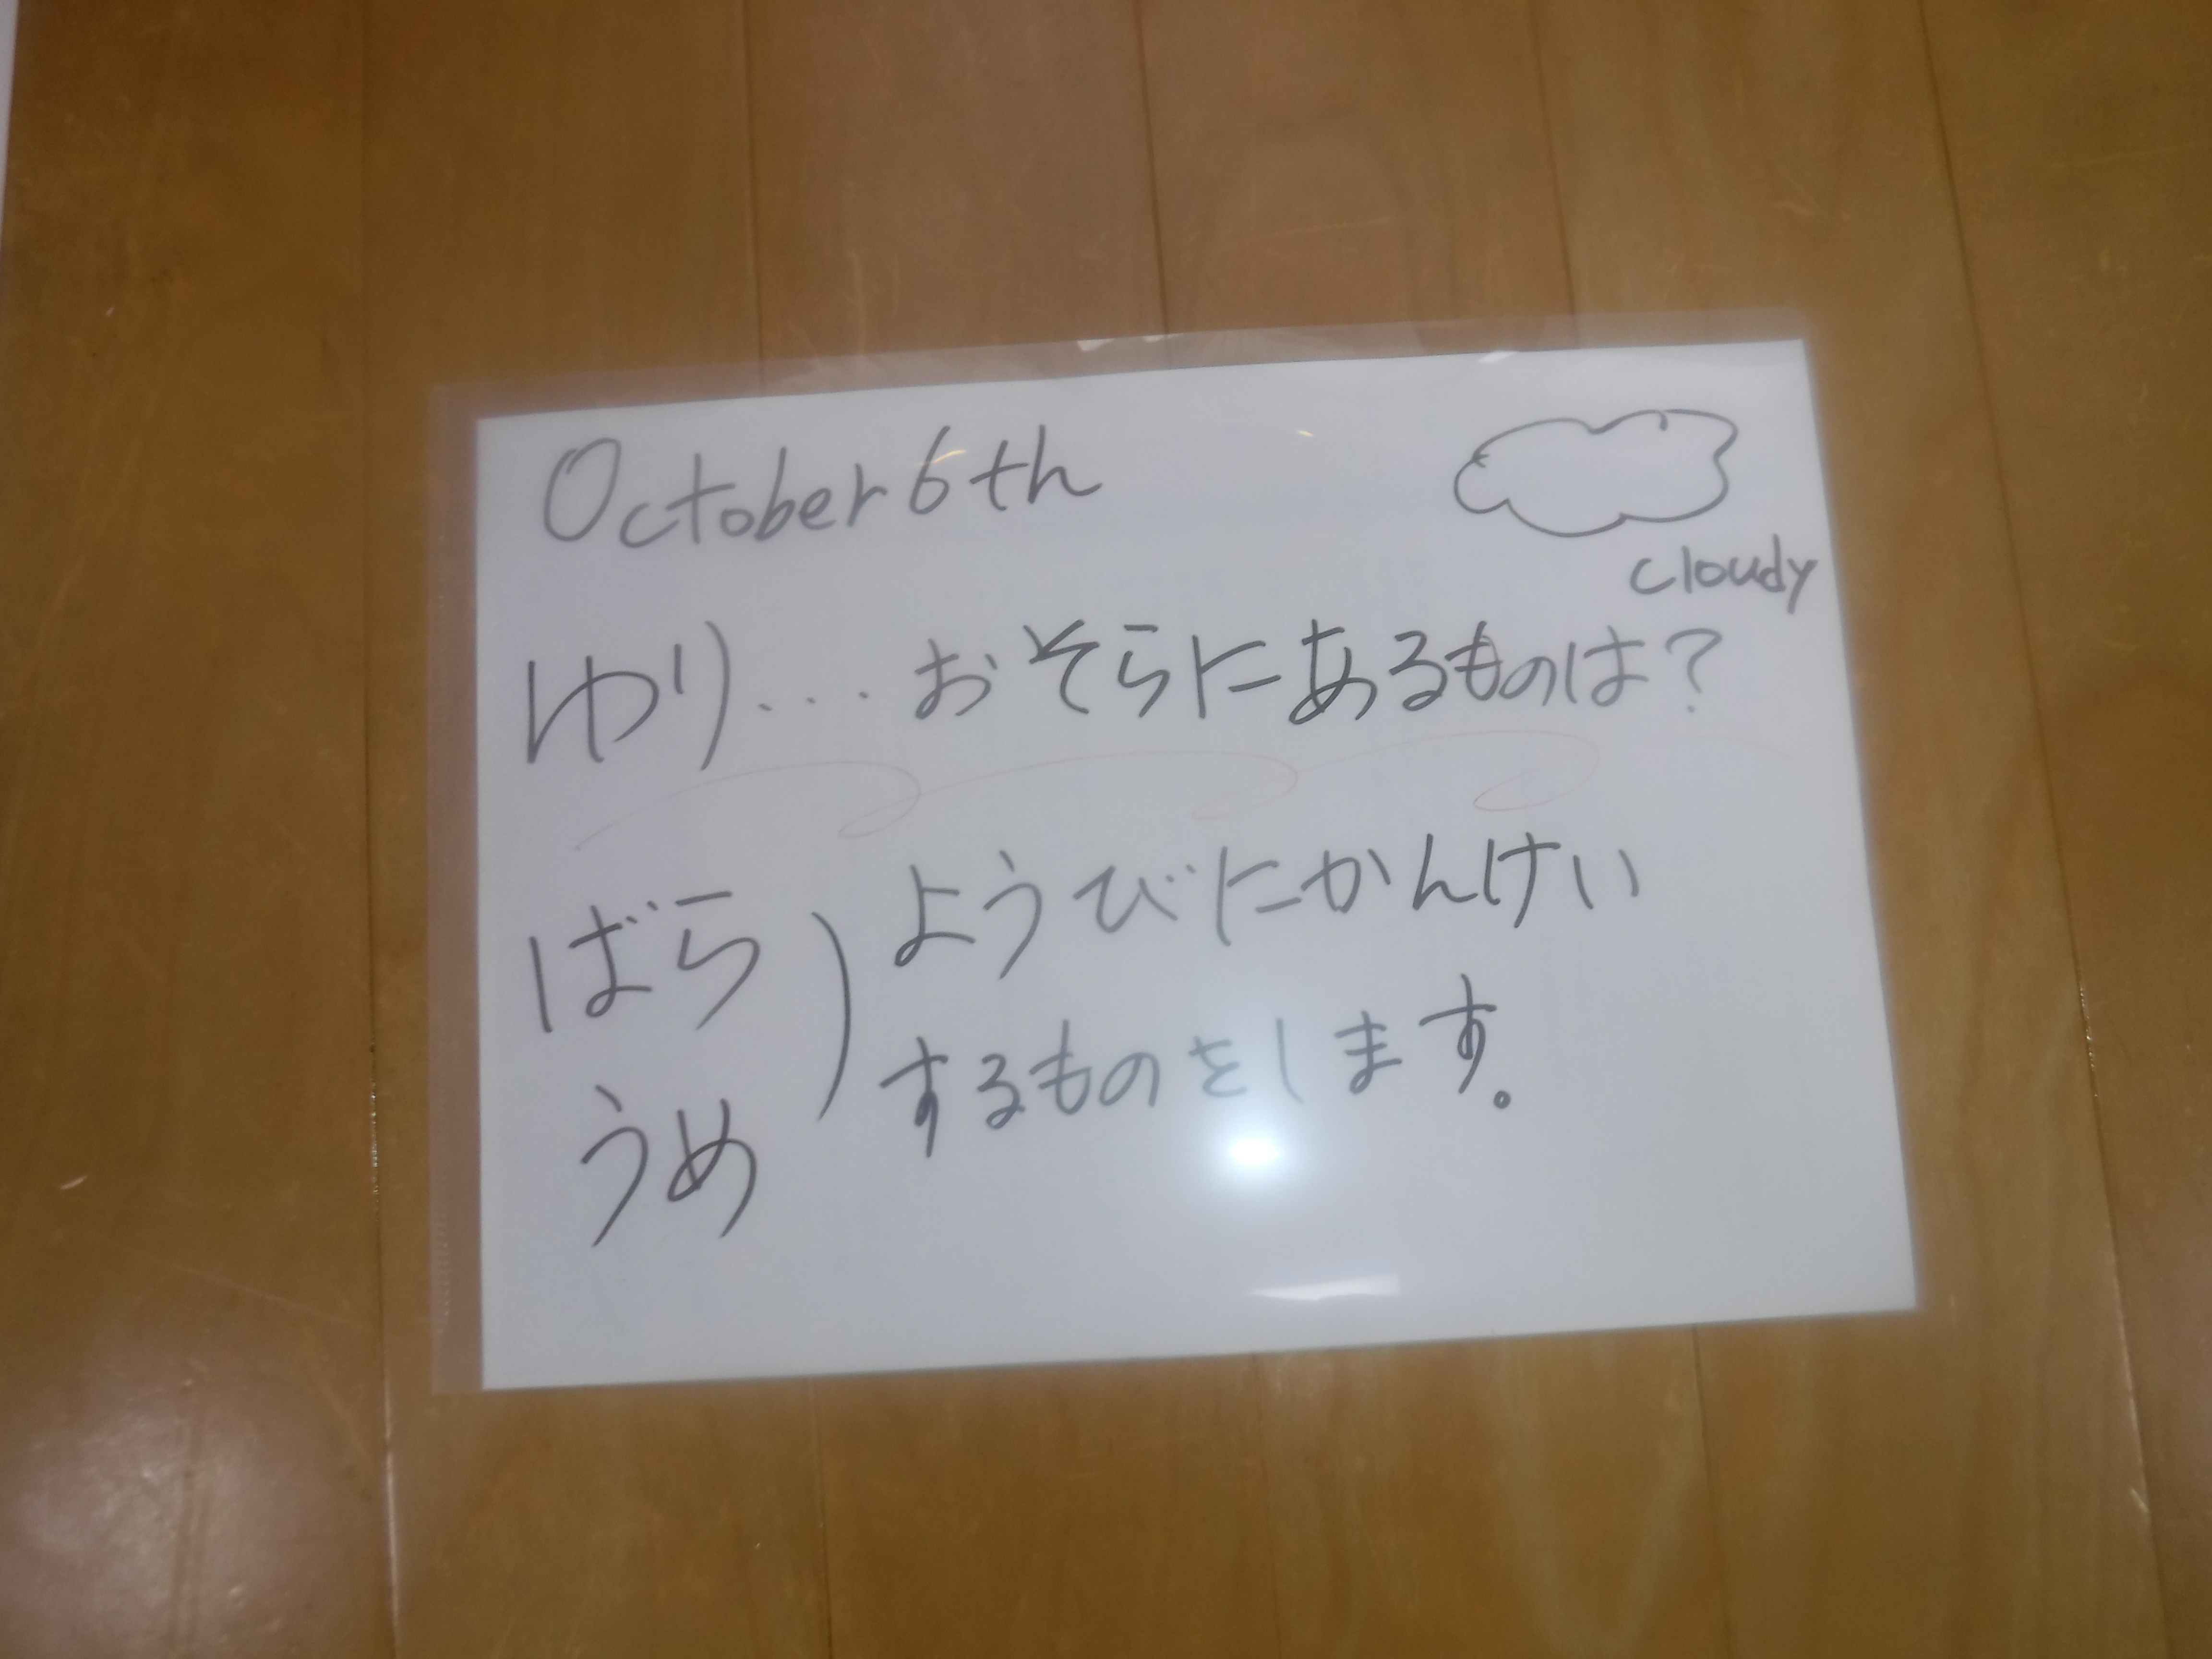 October 6th
cloudy
ゆり... おそらにあるものは?
ばら ようびにかんけい
するものをします。
うめ